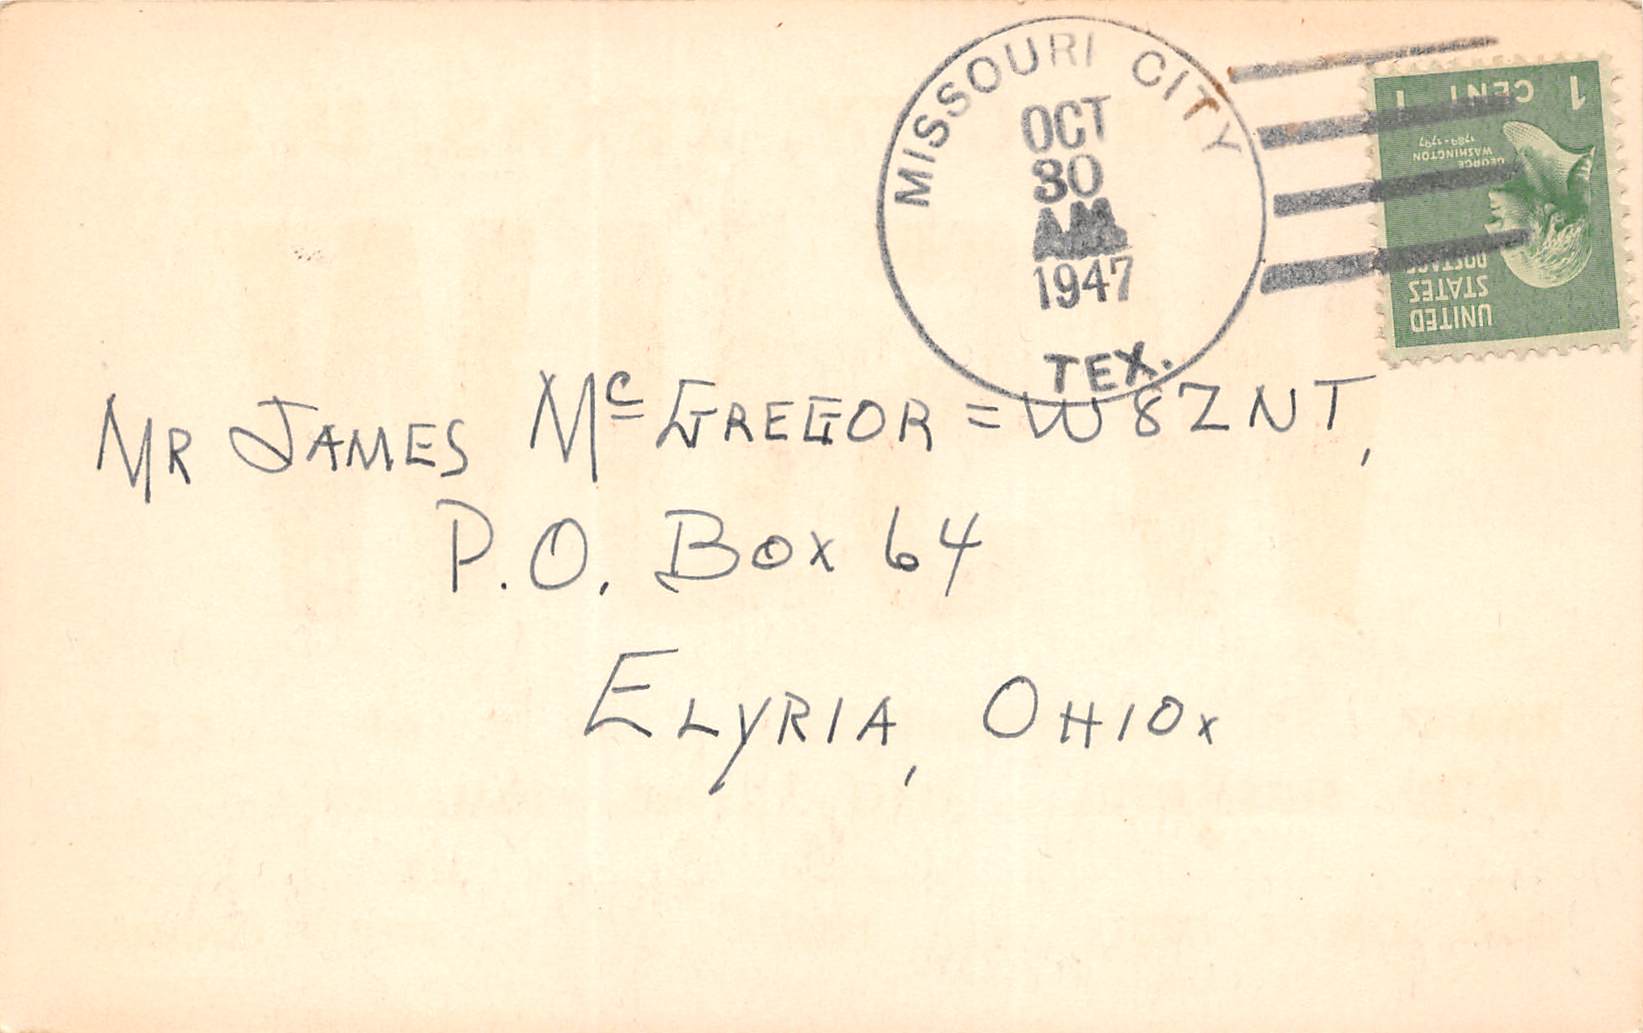 MISSOURI CITY
OCT
30
AM
1947
TEX.
1 CENT 1
GEORGE
WASHINGTON
1789-1797
UNITED
STATES
POSTAGE
MR JAMES McGREGOR = W8ZNT,
P.O. BOX 64
ELYRIA, OHIOx